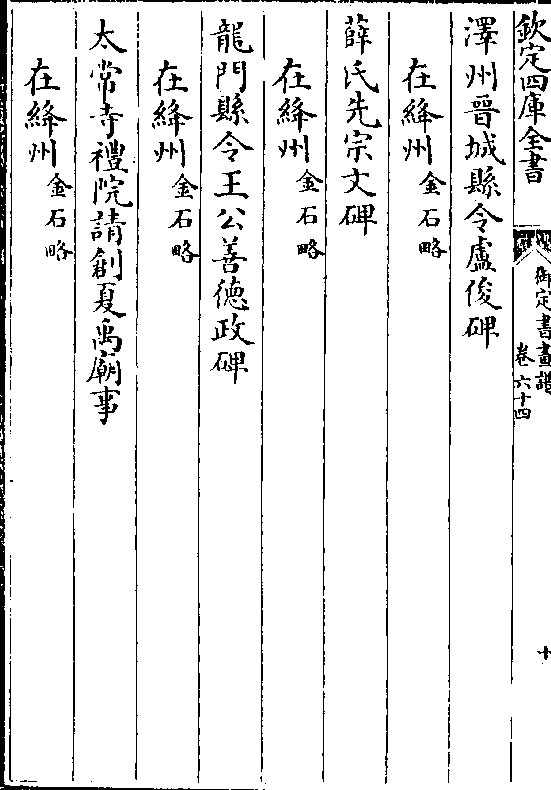 欽定四庫全書
御定書畫譜
卷六十四
十
澤州晉城縣令盧俊碑
在絳州金石略
薛氏先宗文碑
在絳州金石略
龍門縣令王公善德政碑
在絳州金石略
太常寺禮院請創夏禹廟事
在絳州金石略